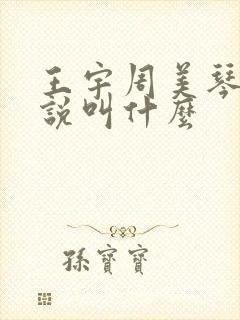 王宇周美琴
說叫什麼
孫寶寶